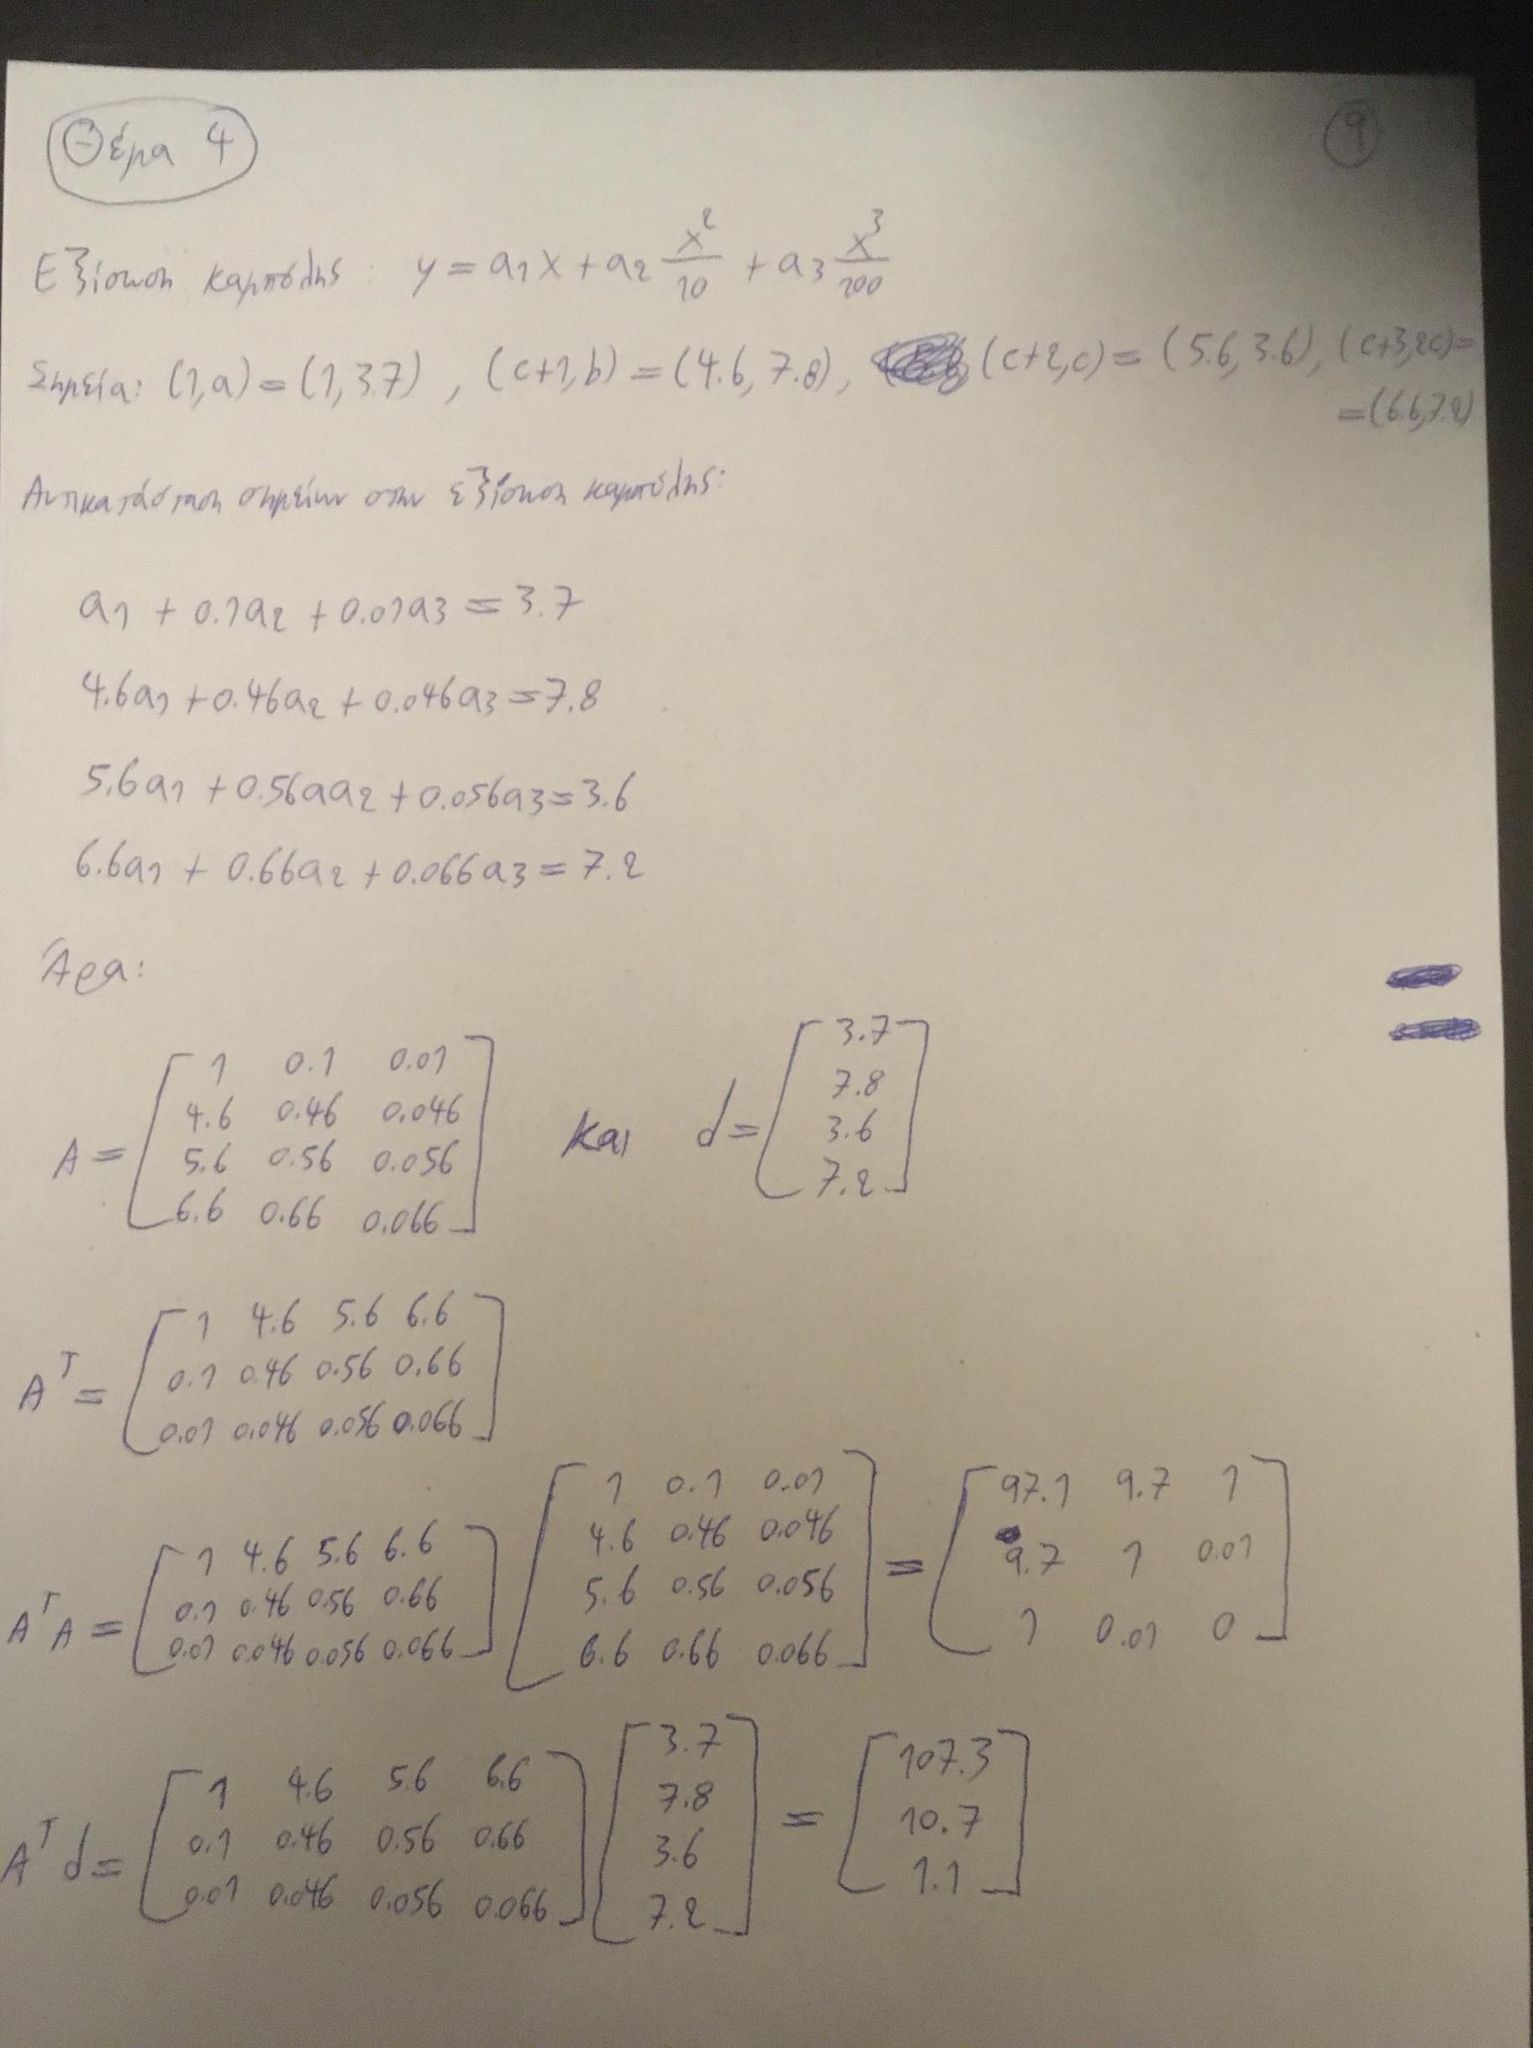 Θέμα 4
9
Εξίσωση καμπύλης: y = a1x + a2 x²/10 + a3 x³/100
Σημεία: (1,a) = (1,3.7), (c+1,b) = (4.6,7.8), (c+2,c) = (5.6,3.6), (c+3,2c) =
= (6.6,7.2)
Αντικατάσταση σημείων στην εξίσωση καμπύλης:
a1 + 0.1a2 + 0.01a3 = 3.7
4.6a1 + 0.46a2 + 0.046a3 = 7.8
5.6a1 + 0.56aa2 + 0.056a3 = 3.6
6.6a1 + 0.66a2 + 0.066a3 = 7.2
Άρα:
A = [1 0.1 0.01; 4.6 0.46 0.046; 5.6 0.56 0.056; 6.6 0.66 0.066] και d = [3.7; 7.8; 3.6; 7.2]
Aᵀ = [1 4.6 5.6 6.6; 0.1 0.46 0.56 0.66; 0.01 0.046 0.056 0.066]
AᵀA = [1 4.6 5.6 6.6; 0.1 0.46 0.56 0.66; 0.01 0.046 0.056 0.066] [1 0.1 0.01; 4.6 0.46 0.046; 5.6 0.56 0.056; 6.6 0.66 0.066] = [97.1 9.7 1; 9.7 1 0.01; 1 0.01 0]
Aᵀd = [1 4.6 5.6 6.6; 0.1 0.46 0.56 0.66; 0.01 0.046 0.056 0.066] [3.7; 7.8; 3.6; 7.2] = [107.3; 10.7; 1.1]